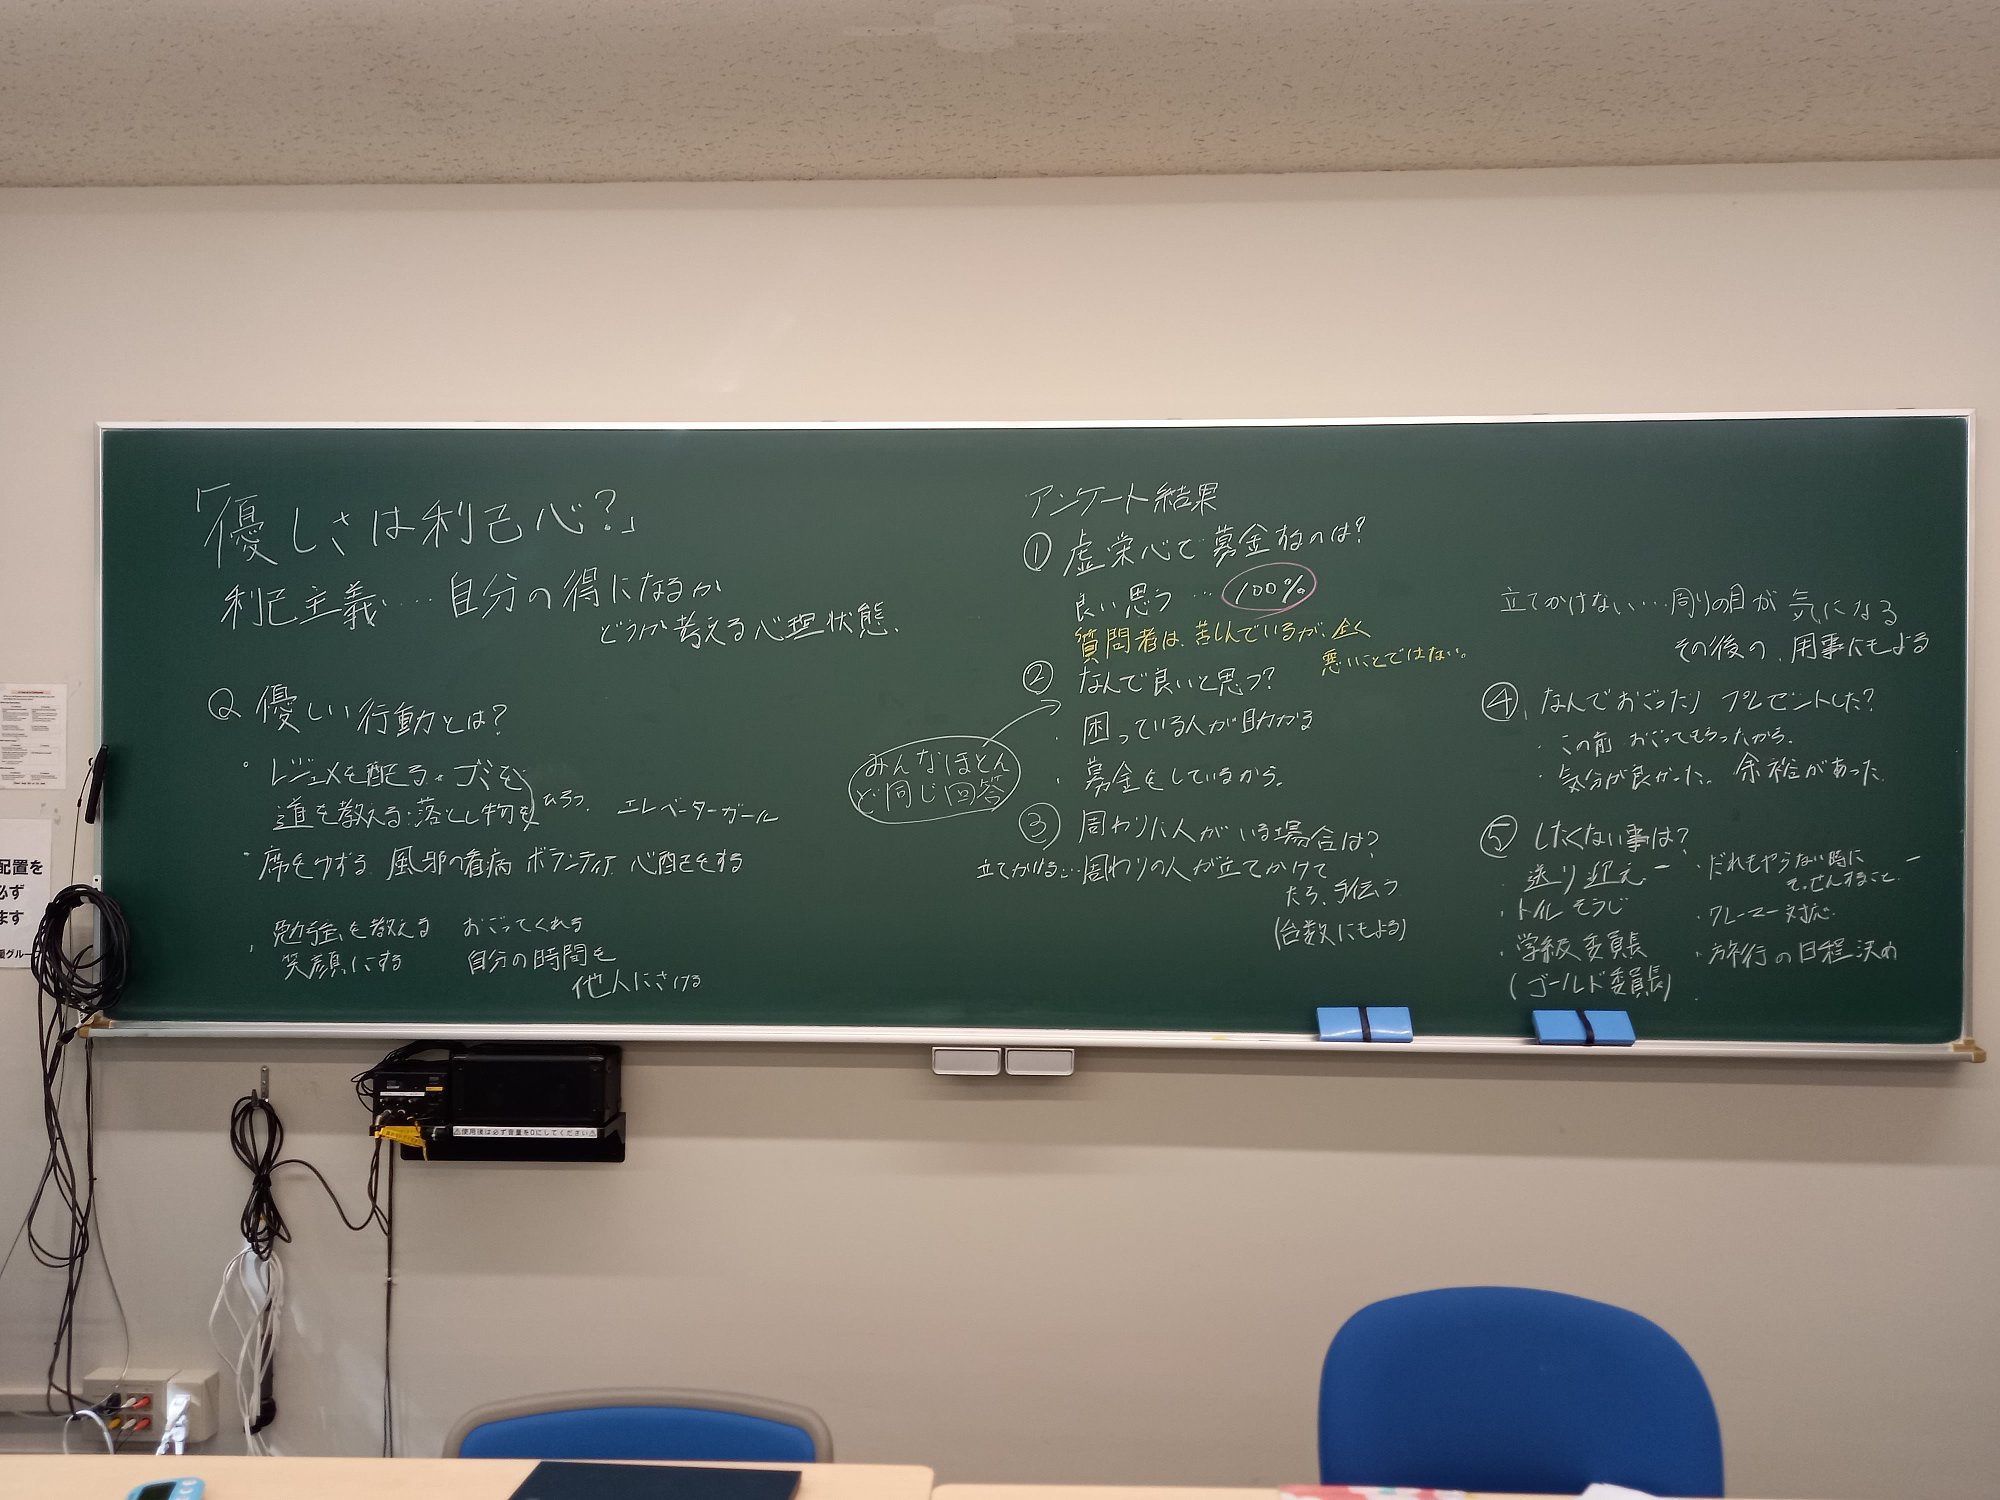 「優しさは利己心?」
利己主義…自分の得になるか
どうか考える心理状態、
Q 優しい行動とは?
・レジュメを配る・ゴミを
道を教える・落とし物を ひろう エレベーターガール
・席をゆずる 風邪の看病 ボランティア 心配をする
勉強を教える おごってくれる
・笑顔にする 自分の時間を
他人にさける
アンケート結果
① 虚栄心で募金するのは?
良い思う…100%
質問者は、苦しんでいるが、全く
悪いことではない。
② なんで良いと思う?
・困っている人が助かる
・募金をしているから。
みんなほとん
ど同じ回答
③ 周わりに人がいる場合は?
立てかける…周わりの人が立てかけて
たら、手伝う
(台数にもよる)
立てかけない…周りの目が気になる
その後の、用事にもよる
④、なんでおごったり プレゼントした?
・この前 おごってもらったから、
・気分が良かった。余裕があった
⑤ したくない事は?
・送り迎え
・トイレそうじ
・学級委員長
(ゴールド委員長)
・だれもやらない時に
そっせんすること
・クレーマー対応
・旅行の日程決め
配置を
必ず
ます
グルー
⚠使用後は必ず音量を0にしてください⚠